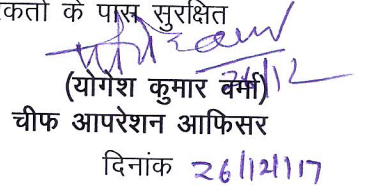 के पास सुरक्षित
26/12
(योगेश कुमार वर्मा)
चीफ आपरेशन आफिसर
दिनांक 26/12/17